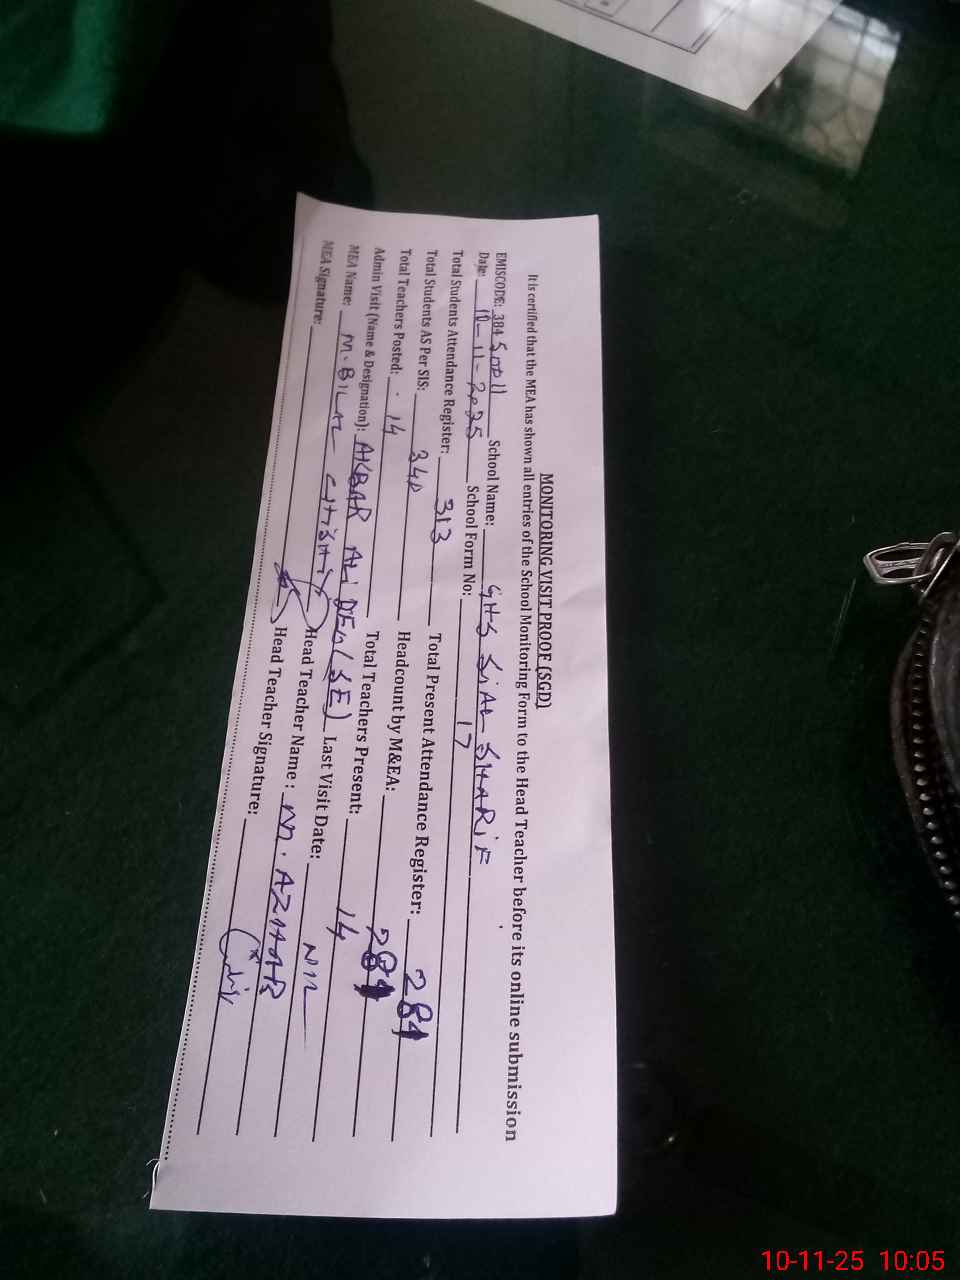 MONITORING VISIT PROOF (SGD)
It is certified that the MEA has shown all entries of the School Monitoring Form to the Head Teacher before its online submission
EMISCODE: 384 School Name: GHS SiAL SHARiF
Date: 10-11-2025 School Form No: 17
Total Students Attendance Register: 313 Total Present Attendance Register: 284
Total Students AS Per SIS: 340 Headcount by M&EA: 284
Total Teachers Posted: 14 Total Teachers Present: 14
Admin Visit (Name & Designation): AKBAR ALi DEO (SE) Last Visit Date: NIL
MEA Name: M. BILAL CHISHTI Head Teacher Name: M. AZHAR
MEA Signature: Head Teacher Signature:
10-11-25 10:05